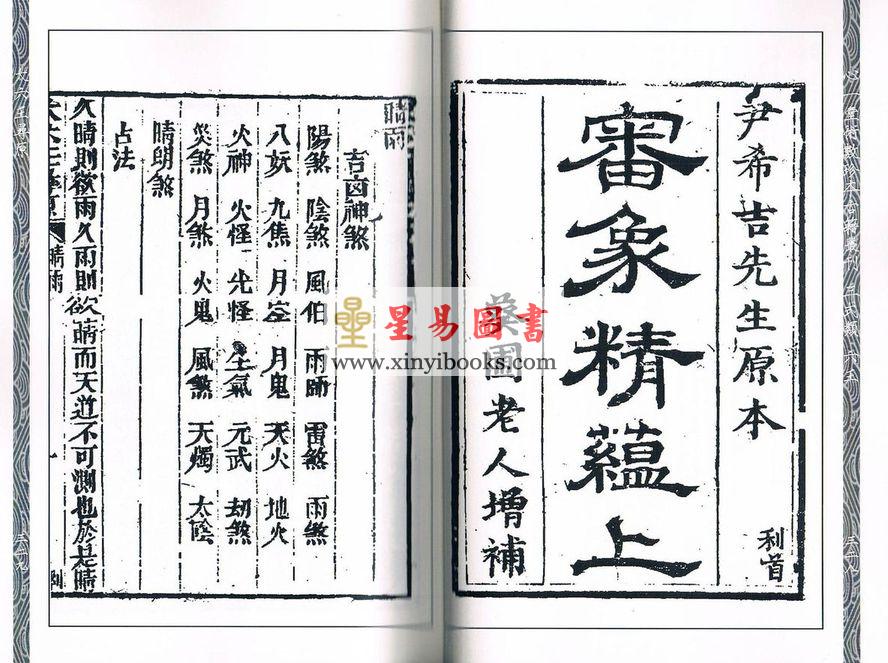 尹希吉先生原本
利首
審象精蘊上
老人增補
晴雨
吉凶神煞
陽煞 陰煞 風伯 雨師 雷煞 雨煞
八妖 九焦 月空 月鬼 天火 地火
火神 火怪 光怪 生氣 元武 刼煞
災煞 月煞 火鬼 風煞 天燭 太陰
晴朗煞
占法
久晴則欲雨久雨則欲晴而天道不可測也於是晴
晴雨
星易圖書
www.xinyibooks.com